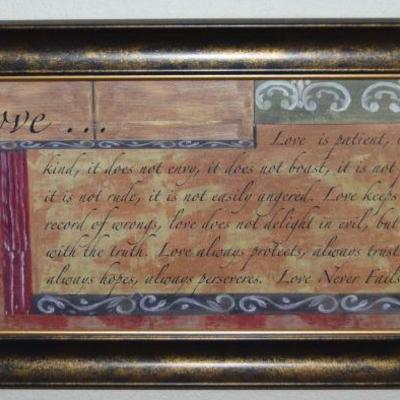 ove ...
Love is patient,
kind, it does not envy, it does not boast, it is not
it is not rude, it is not easily angered. Love keeps
record of wrongs, love does not delight in evil, but
with the truth. Love always protects, always trust
always hopes, always perseveres. Love Never Fails